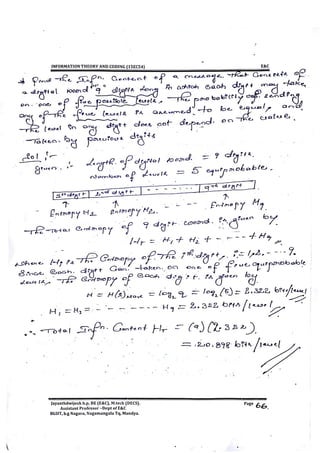 INFORMATION THEORY AND CODING (15EC54) E&C
* Find the Infn. Content of a message that Consists of
a digital word 9 digits long in which each digit may take
on one of five possible levels. The probability of sending
any of the five levels is assumed to be equal, and
the level in any digit does not depend on the values
taken by previous digits
Sol :-
Given :- Length of digital word = 9 digits.
Number of levels = 5 equiprobable.
1st digit 2nd digit - - - - - 9th digit
Entropy H1 Entropy H2 - - - - Entropy H9
The Total Entropy of 9 digit word is given by
HT = H1 + H2 + - - - - + H9
where Hi is the Entropy of the ith digit, i = 1,2, - - - 9.
Since Each digit Can taken on one of five equiprobable
levels, The Entropy of each digit is given by
H = H(s)max = log2 q = log2 (5) = 2.322 bits/level
H1 = H2 = - - - - - - - H9 = 2.322 bits/level
∴ Total Infn. Content HT = (9) (2.322)
= 20.898 bits/level
Jayanthdwijesh h.p. BE (E&C), M.tech (DECS). Page 66
Assistant Professor –Dept of E&C
BGSIT, b.g Nagara, Nagamangala Tq, Mandya.